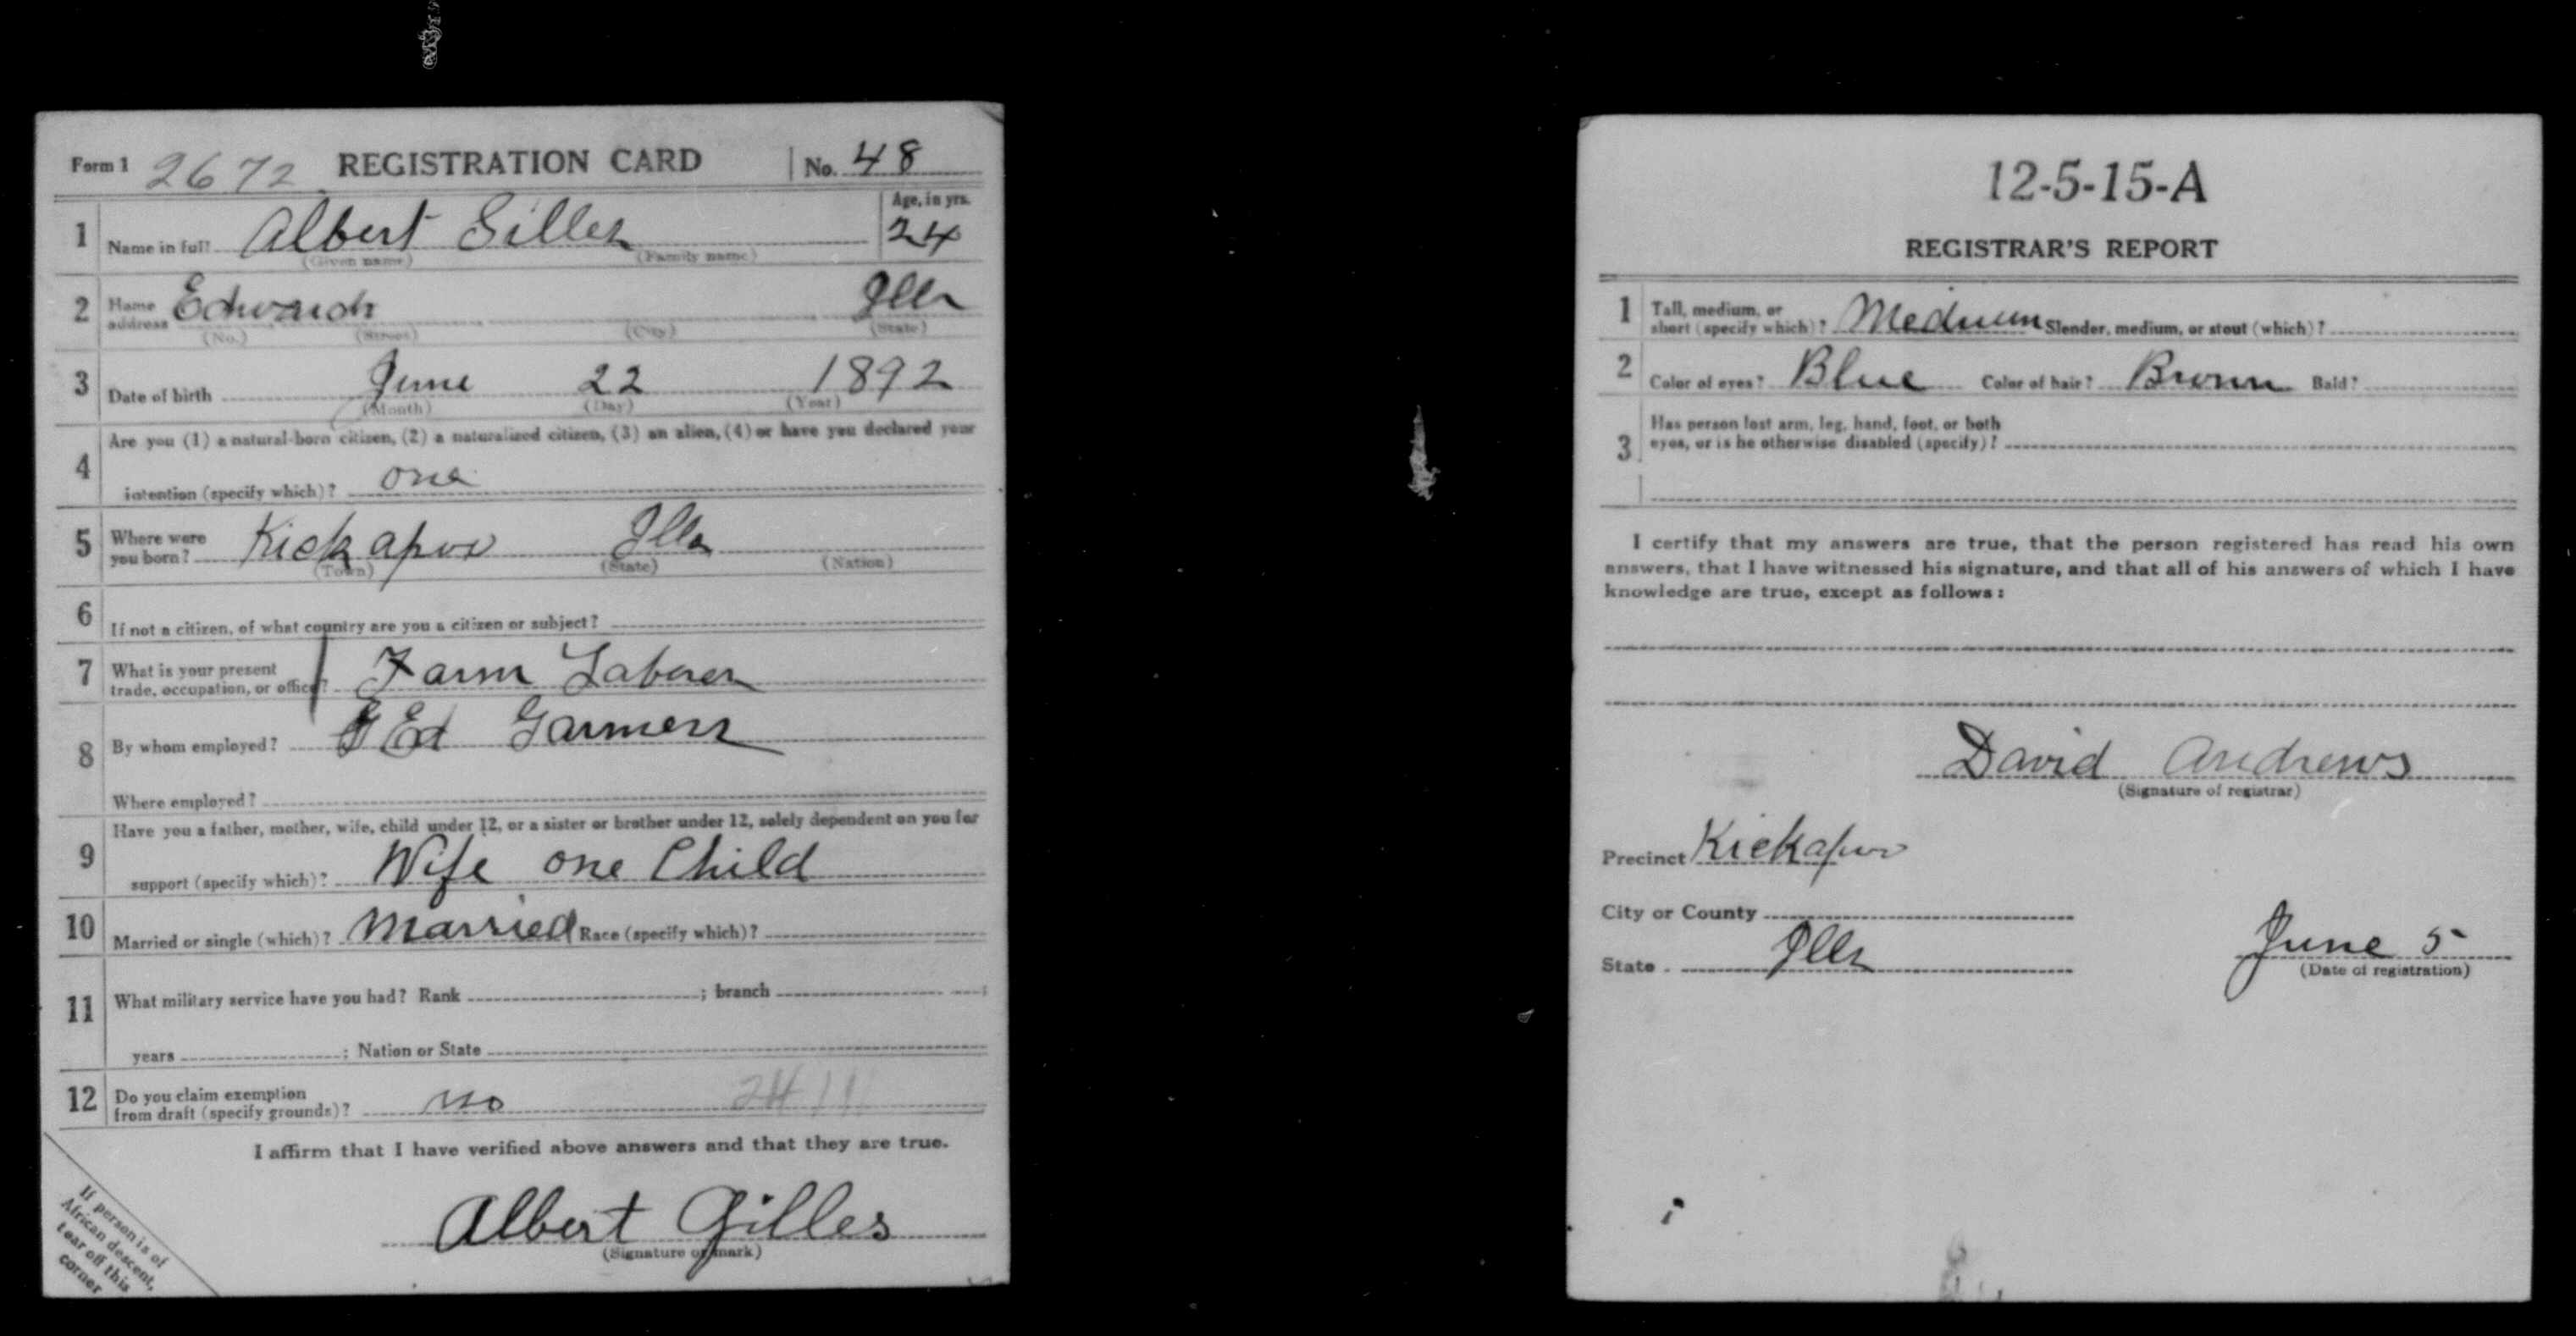 Form 1 2672 REGISTRATION CARD No. 48
1 Name in full Albert Gilles Age, in yrs. 24
(Given name) (Family name)
2 Home address Edwards Ills
(No.) (Street) (City) (State)
3 Date of birth June 22 1892
(Month) (Day) (Year)
Are you (1) a natural-born citizen, (2) a naturalized citizen, (3) an alien, (4) or have you declared your
4 intention (specify which)? one
5 Where were you born? Kickapoo Ills
(Town) (State) (Nation)
6 If not a citizen, of what country are you a citizen or subject?
7 What is your present trade, occupation, or office? Farm Laborer
8 By whom employed? Ed
Where employed?
Have you a father, mother, wife, child under 12, or a sister or brother under 12, solely dependent on you for
9 support (specify which)? Wife one Child
10 Married or single (which)? Married Race (specify which)?
11 What military service have you had? Rank ; branch ;
years ; Nation or State
12 Do you claim exemption from draft (specify grounds)? no
I affirm that I have verified above answers and that they are true.
Albert Gilles
(Signature or mark)
If person is of
African descent,
tear off this
corner
12-5-15-A
REGISTRAR'S REPORT
1 Tall, medium, or short (specify which)? Medium Slender, medium, or stout (which)?
2 Color of eyes? Blue Color of hair? Brown Bald?
3 Has person lost arm, leg, hand, foot, or both
eyes, or is he otherwise disabled (specify)?
I certify that my answers are true, that the person registered has read his own
answers, that I have witnessed his signature, and that all of his answers of which I have
knowledge are true, except as follows:
David Andrews
(Signature of registrar)
Precinct Kickapoo
City or County
State Ills June 5
(Date of registration)